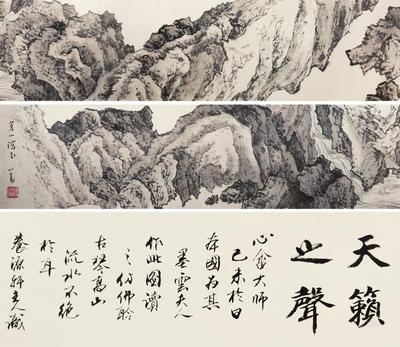 天籟
之聲
心畬大師
己未於日
本國為其
墨雲夫人
作此圖讀
之仿佛聆
古琴高山
流水不絕
於耳
養源軒主人藏